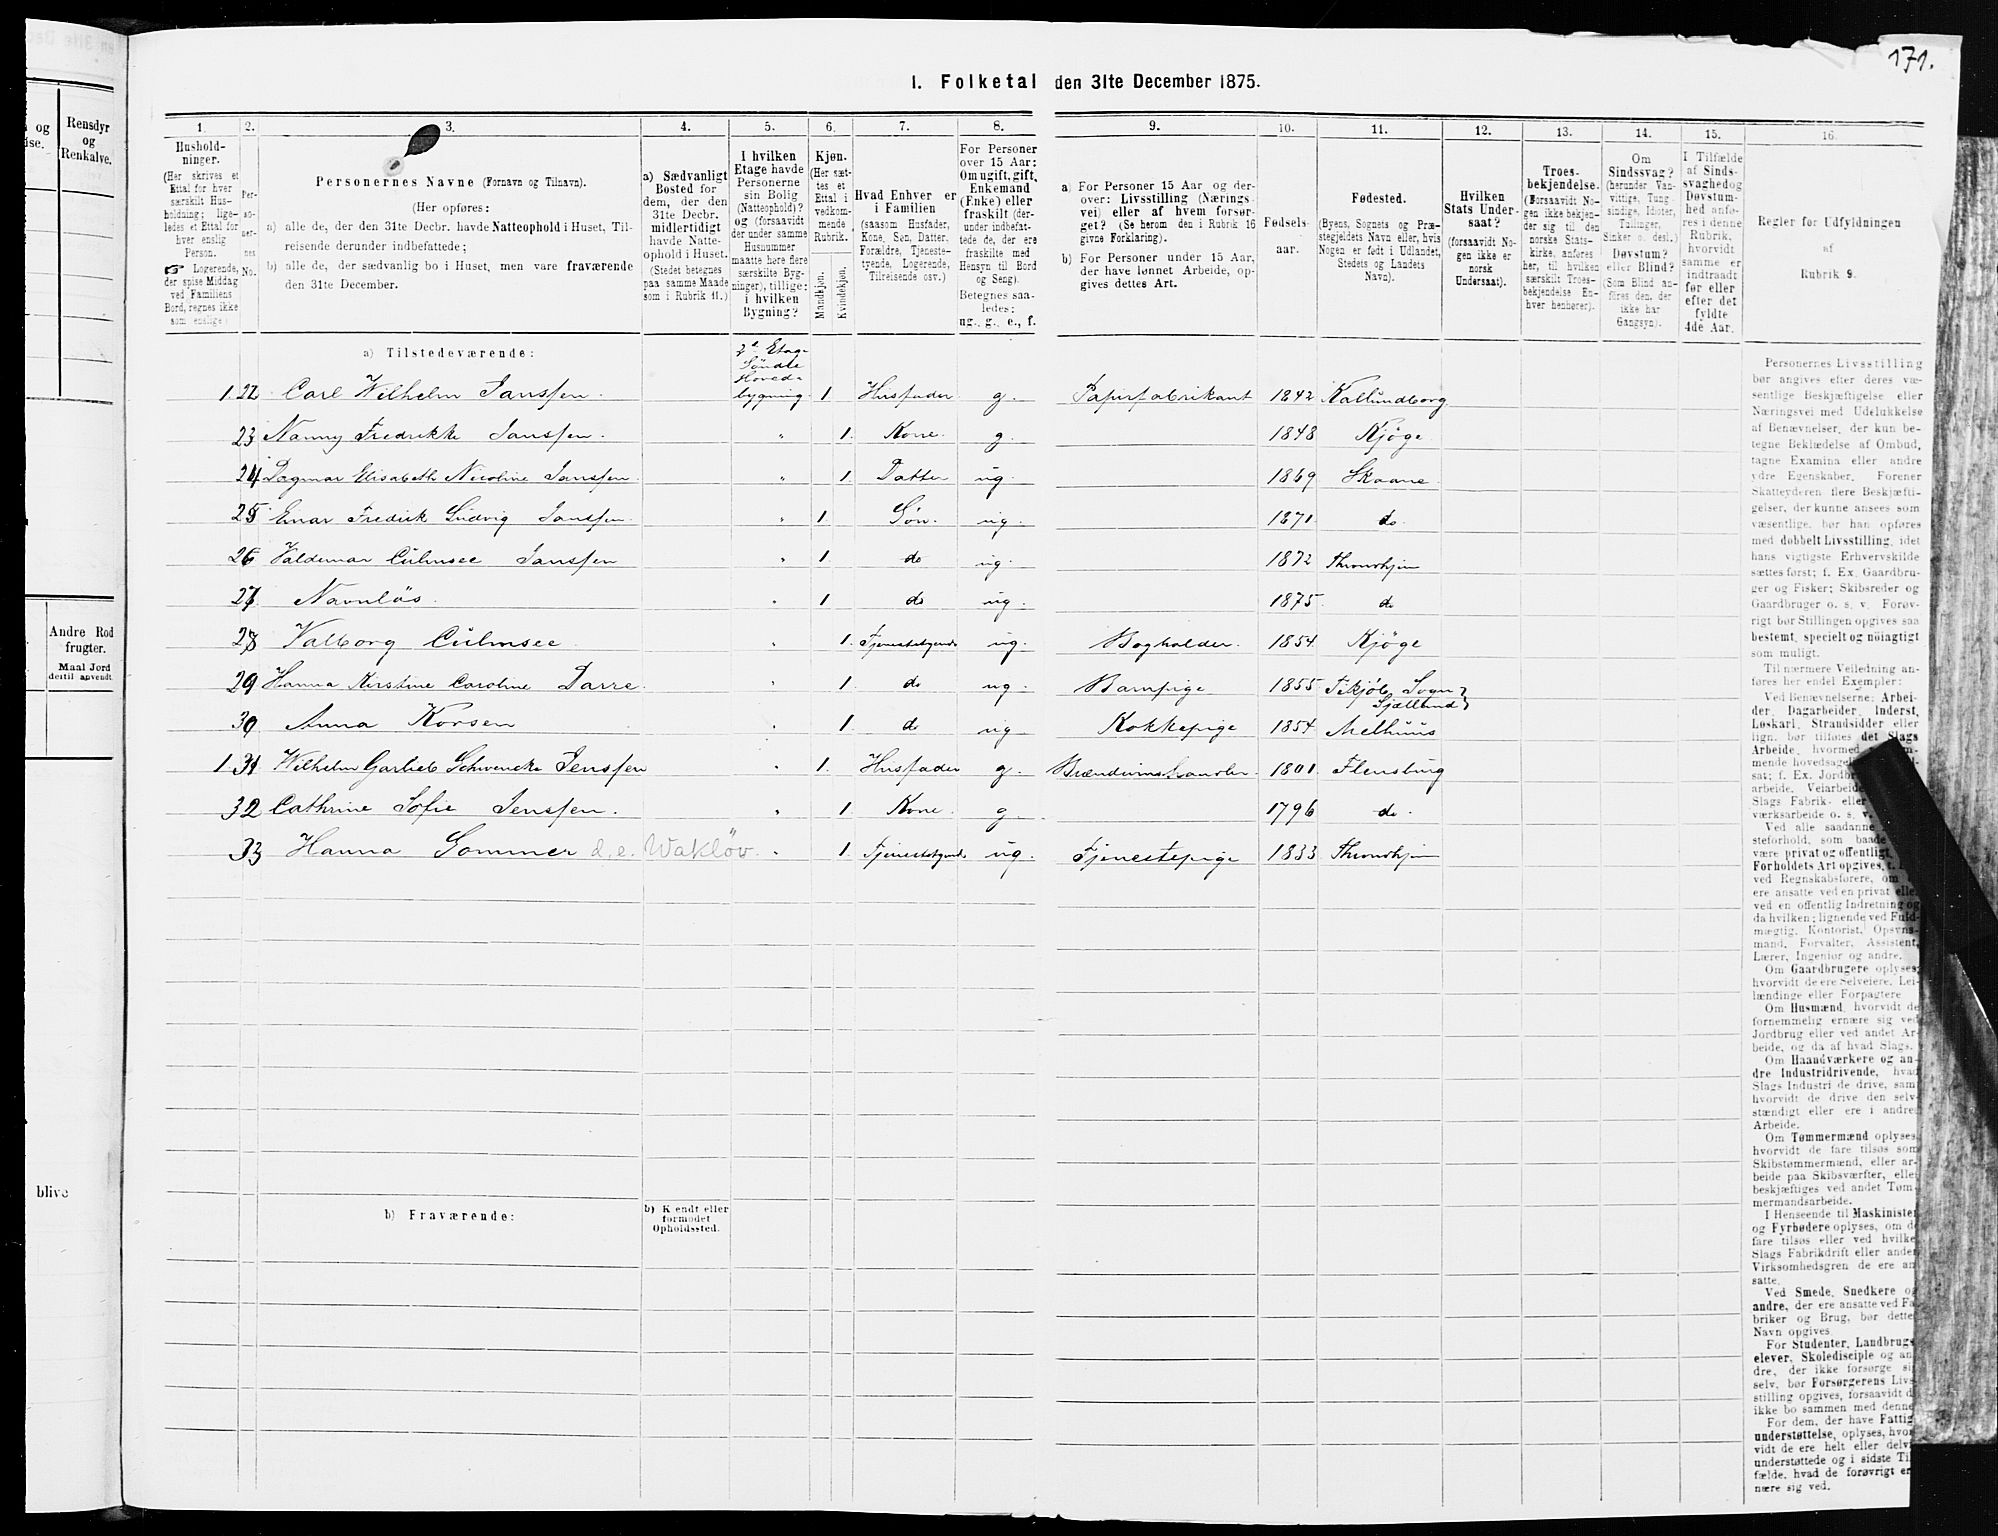 171.
I. Folketal den 31te December 1875.
og
Rensdyr
og
Renkalve.
Andre Rod
frugter.
Maal Jord
dertil anvendt.
blive
1. 2. 3. 4. 5. 6. 7. 8. 9. 10. 11. 12. 13. 14. 15. 16.
Hushold-
ninger.
(Her skrives et
Ettal for hver
særskilt Hus-
holdning; lige-
ledes et Ettal for
hver enslig
Person.
☞ Logerende,
der spise Middag
ved Familiens
Bord, regnes ikke
som enslige)
Per-
so-
ner-
nes
No.
Personernes Navne (Fornavn og Tilnavn).
(Her opføres:
a) alle de, der den 31te Decbr. havde Natteophold i Huset, Til-
reisende derunder indbefattede;
b) alle de, der sædvanlig bo i Huset, men vare fraværende
den 31te December.
a) Sædvanligt
Bosted for
dem, der den
31te Decbr.
midlertidigt
havde Natte-
ophold i Huset.
(Stedet betegnes
paa samme Maade
som i Rubrik 11.)
I hvilken
Etage havde
Personerne
sin Bolig
(Natteophold)?
og (forsaavidt
der under samme
Husnummer
maatte høre flere
særskilte Byg-
ninger), tillige:
i hvilken
Bygning?
Kjøn.
(Her sæt-
tes et
Ettal i
vedkom-
mende
Rubrik.
Mandkjøn.
Kvindekjøn.
Hvad Enhver er
i Familien
(saasom Husfader,
Kone, Søn, Datter,
Forældre, Tjeneste-
tyende, Logerende,
Tilreisende osv.)
For Personer
over 15 Aar:
Om ugift, gift,
Enkemand
(Enke) eller
fraskilt (der-
under indbefat-
tede de, der ere
fraskilte med
Hensyn til Bord
og Seng).
Betegnes saa-
ledes:
ug., g., e., f.
a) For Personer 15 Aar og der-
over: Livsstilling (Nærings-
vei) eller af hvem forsør-
get? (Se herom den i Rubrik 16
givne Forklaring).
b) For Personer under 15 Aar,
der have lønnet Arbeide, op-
gives dettes Art.
Fødsels-
aar.
Fødested.
(Byens, Sognets og Præ-
stegjeldets Navn eller, hvis
Nogen er født i Udlandet,
Stedets og Landets
Navn).
Hvilken
Stats Under-
saat?
(forsaavidt No-
gen ikke er
norsk
Undersaat).
Troes-
bekjendelse.
(Forsaavidt No-
gen ikke bekjen-
der sig til den
norske Stats-
kirke, anføres
her, til hvilken
særskilt Troes-
bekjendelse En-
hver henhører).
Om
Sindssvag?
(herunder Van-
vittige, Tung-
sindige, Idioter,
Tullinger,
Sinker o. desl.)
Døvstum?
eller Blind?
(Som Blind an-
føres den, der
ikke har
Gangsyn).
I Tilfælde
af Sinds-
svaghed og
Døvstum-
hed anfø-
res i denne
Rubrik,
hvorvidt
samme er
indtraadt
før eller
efter det
fyldte
4de Aar.
Regler for Udfyldningen
af
Rubrik 9.
a) Tilstedeværende:
2den Etage
Søndre
Hoved-
1 22 Carl Wilhelm Janssen. bygning 1 Husfader g. Papirfabrikant 1842 Kallundborg
23 Nanny Fredrikke Janssen. " 1. Kone. g. 1848 Kjøge.
24 Dagmar Elisabeth Nicoline Janssen. " 1 Datter ug. 1869 Skaane
25 Einar Fredrik Ludvig Janssen. " 1. Søn. ug. 1871. do.
26 Valdemar Culmsee Janssen " 1. do ug. 1872 Throndhjem
27. Navnløs. " 1 do ug. 1875. do
28 Valborg Culmsee. " 1. Tjenestetyende ug. Bogholder. 1854. Kjøge
29 Hanna Kirstine Caroline Darre. " 1. do ug. Barnpige 1855 Tikjøb Sogn
Sjælland
30 Anna Korsen " 1. do ug Kokkepige 1854 Melhuus
1 31 Wilhelm Garlieb Schwencke Jenssen " 1. Husfader g. Brændevinshandler. 1801. Flensburg
32 Cathrine Sofie Jenssen. " 1. Kone. g. 1796 do.
33 Hanna Sommer d.e. Wakløv. " 1. Tjenestetyende ug. Tjenestepige 1833 Throndhjem
b) Fraværende:
b) Kjendt eller
formodet
Opholdssted.
Personernes Livsstilling
bør angives efter deres væ-
sentlige Beskjæftigelse eller
Næringsvei med Udelukkelse
af Benævnelser, der kun be-
tegne Beklædelse af Ombud,
tagne Examina eller andre
ydre Egenskaber. Forener
Skatteyderen flere Beskjæfti-
gelser, der kunne ansees som
væsentlige, bør han opføres
med dobbelt Livsstilling, idet
hans vigtigste Erhvervskilde
sættes først; f. Ex. Gaardbru-
ger og Fisker; Skibsreder og
Gaardbruger o. s. v. Forøv-
rigt bør Stillingen opgives saa
bestemt, specielt og nøiagtigt
som muligt.
Til nærmere Veiledning an-
føres her endel Exempler:
Ved Benævnelserne: Arbei-
der, Dagarbeider, Inderst,
Løskarl, Strandsidder eller
lign. bør tilføies det Slags
Arbeide, hvormed
mende hovedsagel
sat; f. Ex. Jordbr
arbeide, Veiarbeide
Slags Fabrik- eller
værksarbeide o. s. v.
Ved alle saadanne
steforhold, som baade
være privat og offentligt
Forholdets Art opgives,
ved Regnskabsførere, om
ere ansatte ved en privat eller
ved en offentlig Indretning og
da hvilken; lignende ved Fuld-
mægtig, Kontorist, Opsyns-
mand, Forvalter, Assistent,
Lærer, Ingeniør og andre.
Om Gaardbrugere oplyses,
hvorvidt de ere Selveiere, Lei-
lændinge eller Forpagtere
Om Husmænd, hvorvidt de
fornemmelig ernære sig ved
Jordbrug eller ved andet Ar-
beide, og da af hvad Slags.
Om Haandværkere og an-
dre Industridrivende, hvad
Slags Industri de drive, samt
hvorvidt de drive den selv-
stændigt eller ere i andres
Arbeide.
Om Tømmermænd oplyses,
hvorvidt de fare tilsøs som
Skibstømmermænd, eller ar-
beide paa Skibsværfter, eller
beskjæftiges ved andet Tøm-
mermandsarbeide.
I Henseende til Maskinister
og Fyrbødere oplyses, om de
fare tilsøs eller ved hvilket
Slags Fabrikdrift eller anden
Virksomhedsgren de ere an-
satte.
Ved Smede, Snedkere og
andre, der ere ansatte ved Fa-
briker og Brug, bør dettes
Navn opgives.
For Studenter, Landbrugs-
elever, Skoledisciple og an-
dre, der ikke forsørge sig
selv, bør Forsørgerens Livs-
stilling opgives, forsaavidt de
ikke bo sammen med denne.
For dem, der have Fattig-
understøttelse, oplyses, hvor-
vidt de ere helt eller delvis
understøttede og i sidste Til-
fælde, hvad de forøvrigt er-
nære sig ved.